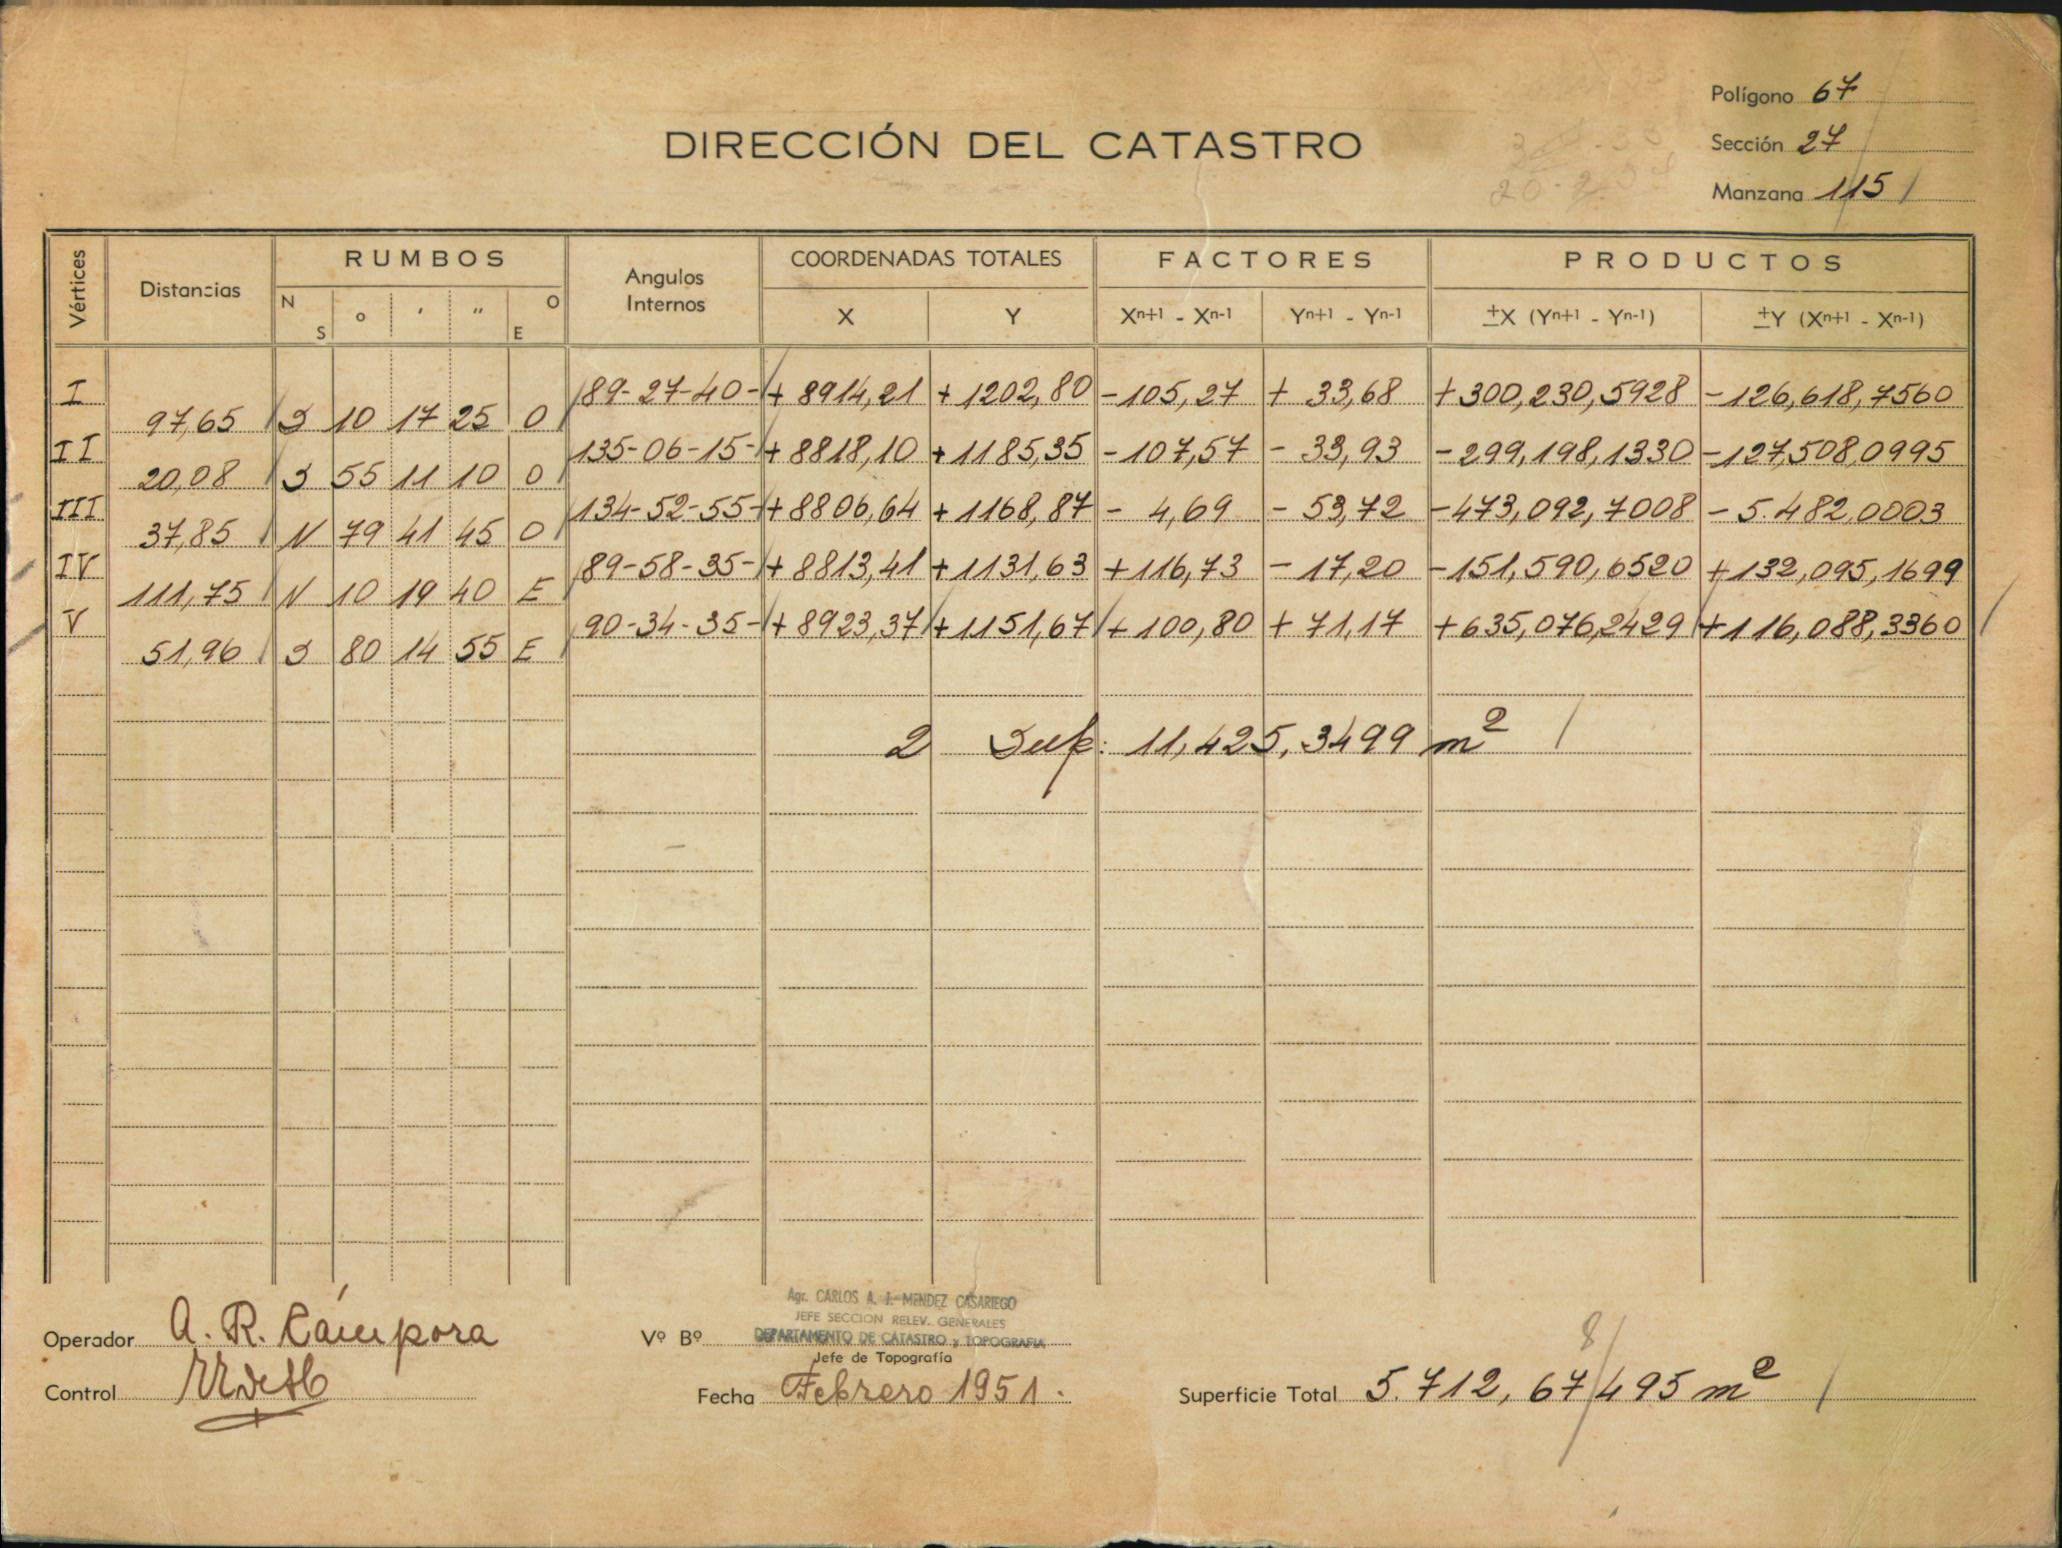 Polígono 67
DIRECCIÓN DEL CATASTRO
Sección 27
Manzana 115
Vértices Distancias RUMBOS Angulos Internos COORDENADAS TOTALES FACTORES PRODUCTOS
N S o ' " O E X Y Xn+1 - Xn-1 Yn+1 - Yn-1 ±X (Yn+1 - Yn-1) ±Y (Xn+1 - Xn-1)
I 89-27-40- + 8914,21 + 1202,80 - 105,27 + 33,68 + 300,230,5928 - 126,618,7560
97,65 S 10 17 25 O
II 135-06-15- + 8818,10 + 1185,35 - 107,57 - 33,93 - 299,198,1330 - 127,508,0995
20,08 S 55 11 10 O
III 134-52-55- + 8806,64 + 1168,87 - 4,69 - 53,72 - 473,092,7008 - 5.482,0003
37,85 N 79 41 45 O
IV 89-58-35- + 8813,41 + 1131,63 + 116,73 - 17,20 - 151,590,6520 + 132,095,1699
111,75 N 10 19 40 E
V 90-34-35- + 8923,37 + 1151,67 + 100,80 + 71,17 + 635,076,2429 + 116,088,3360
51,96 S 80 14 55 E
2 Sup: 11,425,3499 m2
Agr. CARLOS A. J. MENDEZ CASARIEGO
JEFE SECCION RELEV. GENERALES
Operador A. R. Cámpora Vº Bº DEPARTAMENTO DE CATASTRO y TOPOGRAFIA
Jefe de Topografía
8
Control Fecha Febrero 1951. Superficie Total 5.712,67/495 m2